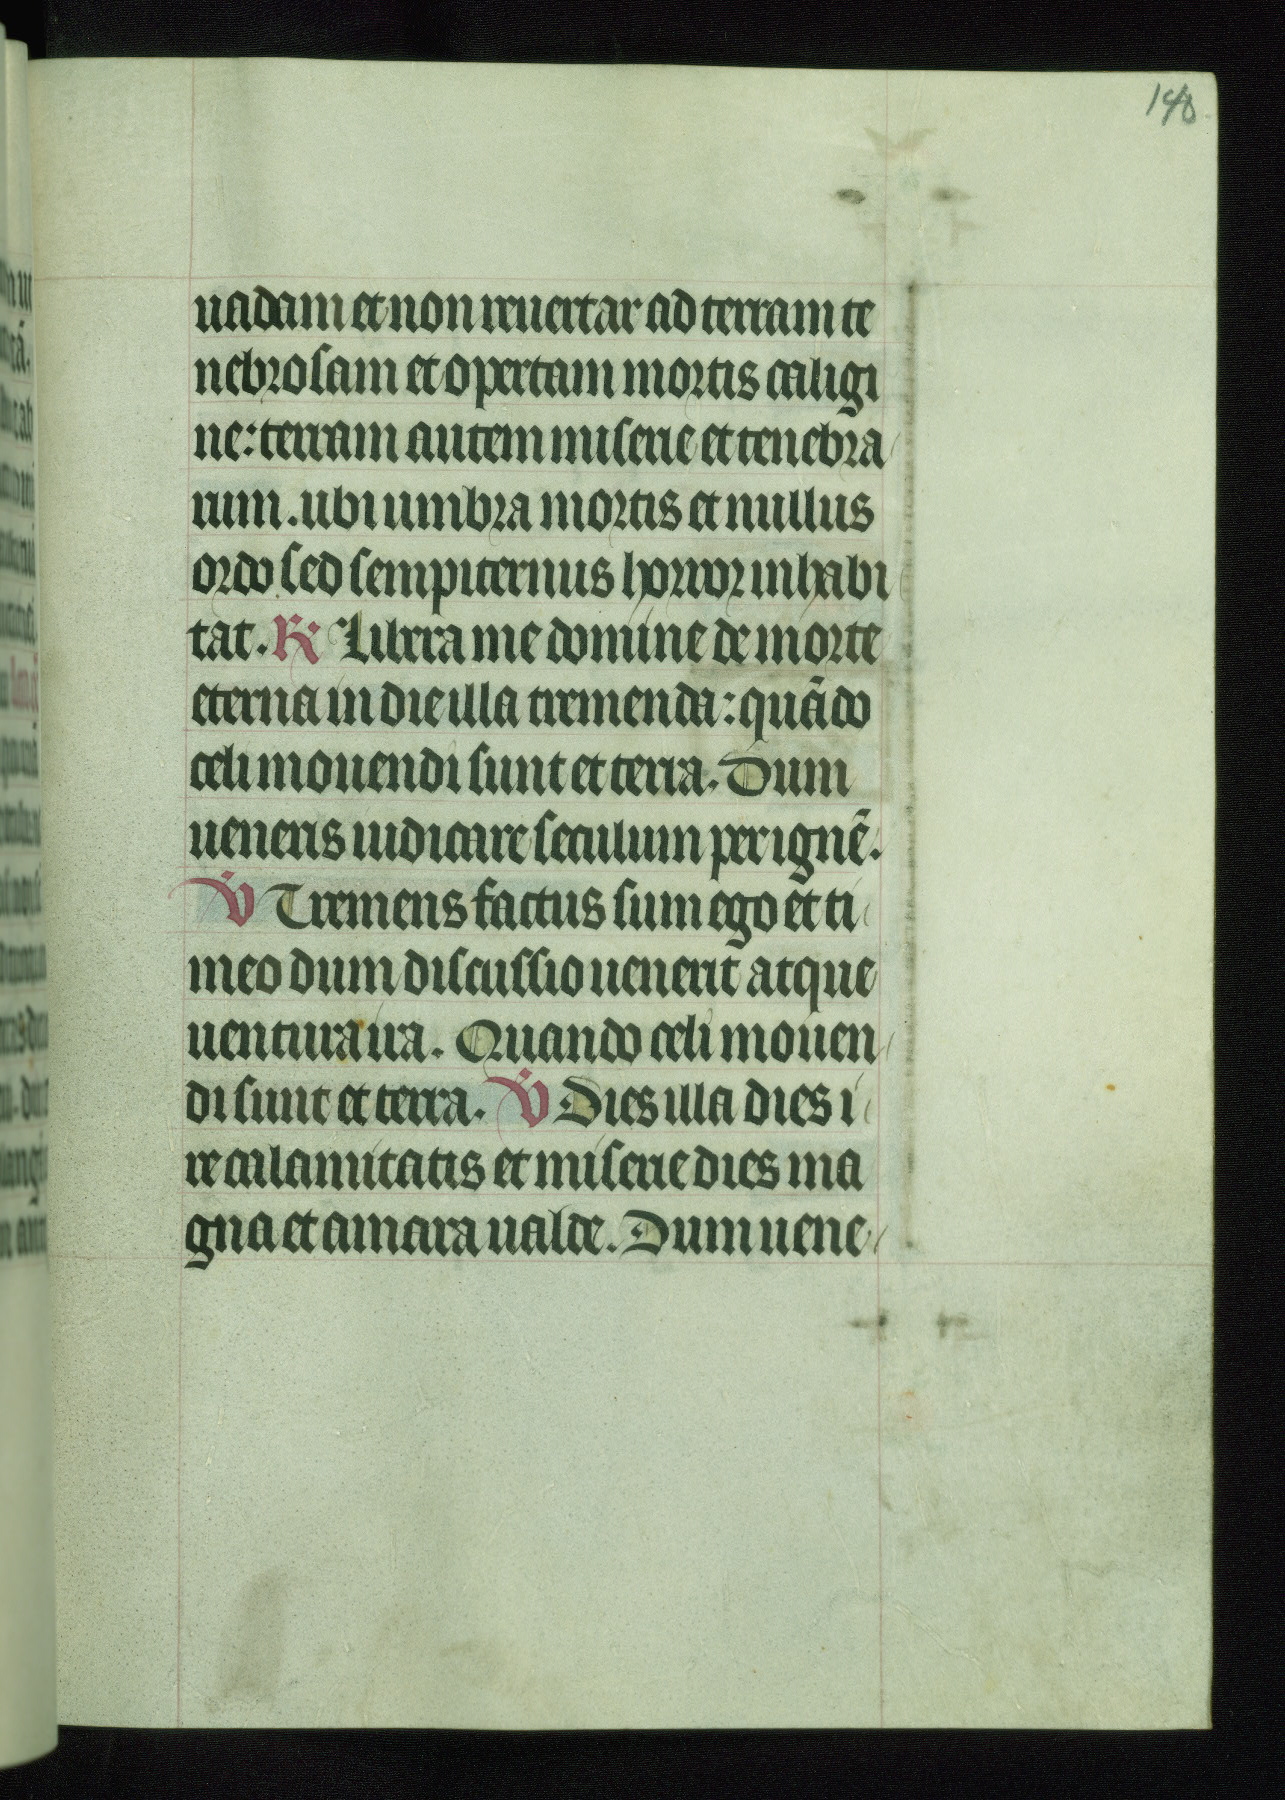 148
uadam et non reuertar ad terram te
nebrosam et opertam mortis caligi
ne: terram autem miserie et tenebra
rum. ubi umbra mortis et nullus
ordo sed sempiternus horror inhabi
tat. R Libera me domine de morte
eterna in die illa tremenda: quãdo
celi mouendi sunt et terra. Dum
ueneris iudicare seculum per ignẽ.
V Tremens factus sum ego et ti
meo dum discussio uenerit atque
uentura ira. Quando celi mouen
di sunt et terra. V Dies illa dies i
re calamitatis et miserie dies ma
gna et amara ualde. Dum uene